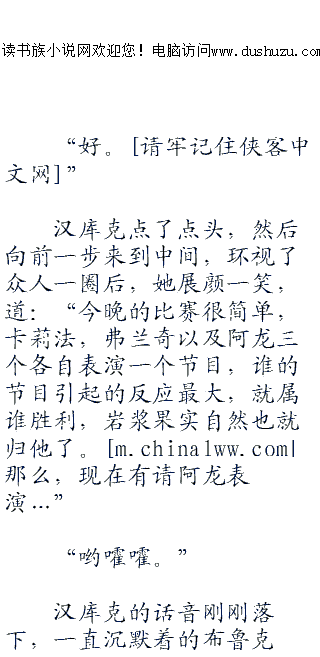 读书族小说网欢迎您! 电脑访问www.dushuzu.com
“好。[请牢记住侠客中
文网]”
汉库克点了点头，然后
向前一步来到中间，环视了
众人一圈后，她展颜一笑，
道：“今晚的比赛很简单，
卡莉法，弗兰奇以及阿龙三
个各自表演一个节目，谁的
节目引起的反应最大，就属
谁胜利，岩浆果实自然也就
归他了。[m.china1ww.com|
那么，现在有请阿龙表
演…”
“哟嚯嚯。”
汉库克的话音刚刚落
下，一直沉默着的布鲁克